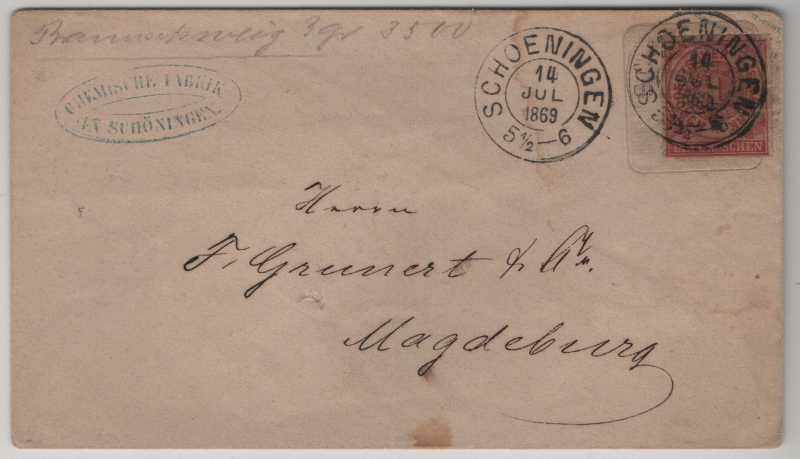 Braunschweig 3gr 3500
CHEMISCHE FABRIK
IN SCHÖNINGEN.
SCHOENINGEN
14
JUL
1869
5½—6
SCHOENINGEN
14
JUL
1869
5½—6
GROSCHEN
Herrn
F. Grunert &
Magdeburg